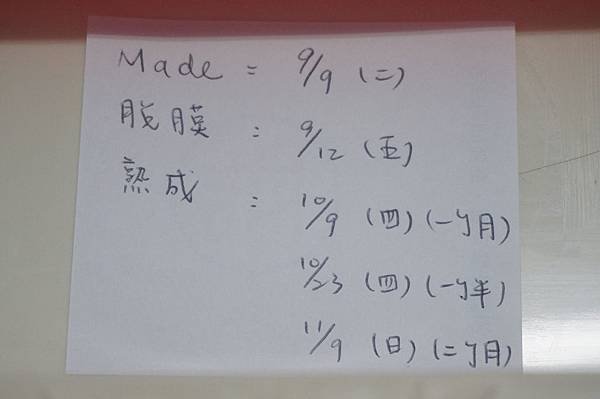 Made : 9/9 (二)
脫膜 : 9/12 (五)
熟成 : 10/9 (四) (一ㄢ月)
10/23 (四) (一ㄢ半)
11/9 (日) (二ㄢ月)